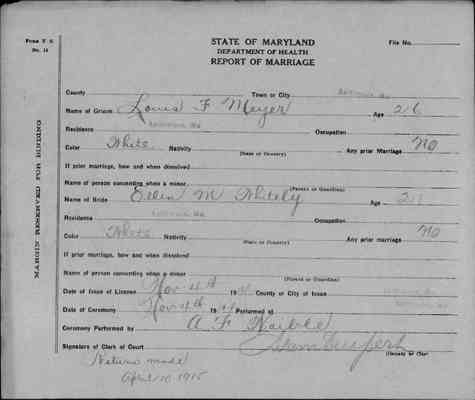 Form V S
No. 14
STATE OF MARYLAND
DEPARTMENT OF HEALTH
REPORT OF MARRIAGE
File No.
MARGIN RESERVED FOR BINDING
County Town or City Baltimore, Md.
Name of Groom Louis F Meyer Age 26
Residence Baltimore, Md. Occupation
Color White Nativity (State or Country) Any prior Marriage No
If prior marriage, how and when dissolved
Name of person consenting when a minor (Parent or Guardian)
Name of Bride Ellen M Whitely Age 21
Residence Baltimore, Md. Occupation
Color White Nativity (State or Country) Any prior Marriage No
If prior marriage, how and when dissolved
Name of person consenting when a minor (Parent or Guardian)
Date of Issue of License Nov 4th 19 County or City of Issue
Date of Ceremony Nov 4th 19 Performed at
Ceremony Performed by A F
Signature of Clerk of Court (County or City)
Return made
April 10 1915